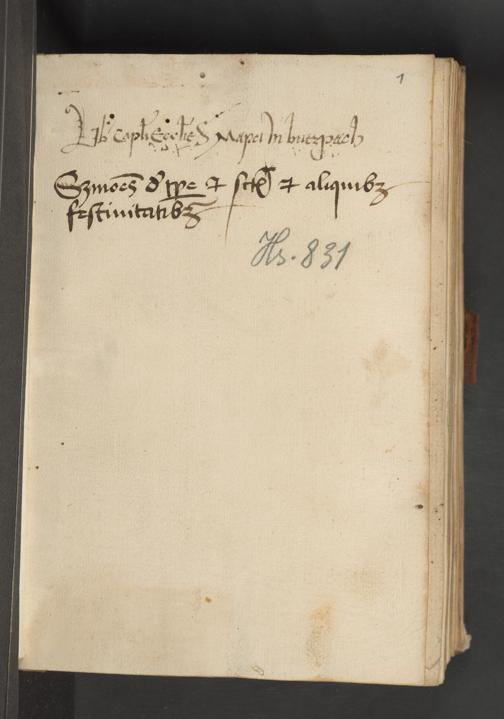 1
Lib' Capli Ecclie S Marci In butzpach
Sermoēs d' tpe et sctis et aliquibz
festivitatibz
Hs. 831